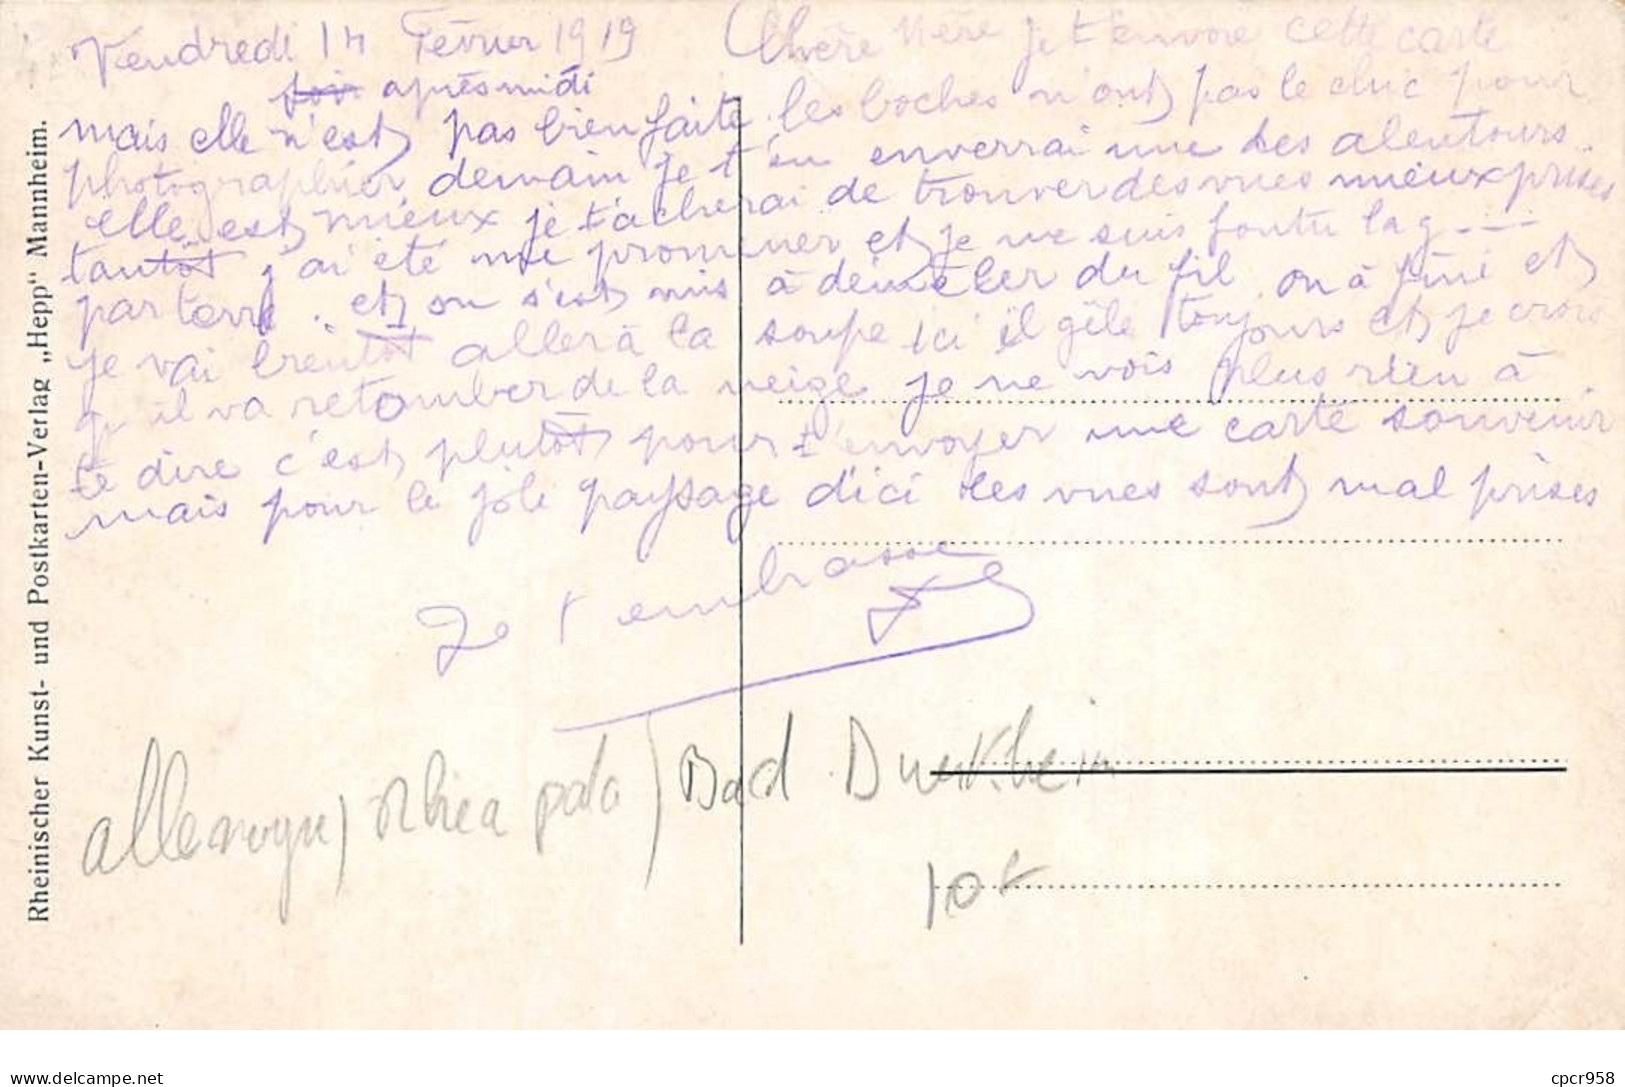 Vendredi 14 Février 1919
soir après midi
Chère Mère je t'envoie cette carte
mais elle n'est pas bien faite. les boches n'ont pas le chic pour
photographier demain je t'en enverrai une des alentours.
elle est mieux je t'acherai de trouver des vues mieux prises
tantôt j'ai été me promener et je me suis foutu la g----
par terre. et on s'est mis à démêler du fil on à fini et
je vai bientôt aller à la soupe ici il gèle toujours et je crois
qu'il va retomber de la neige je ne vois plus rien à
te dire c'est plutôt pour t'envoyer une carte souvenir
mais pour le joli paysage d'ici les vues sont mal prises
Je t'embrasse
allemagne) Rhea pala) Bad Duerkheim
10t
Rheinischer Kunst- und Postkarten-Verlag „Hepp“ Mannheim.
delcampe.net
cpcr958